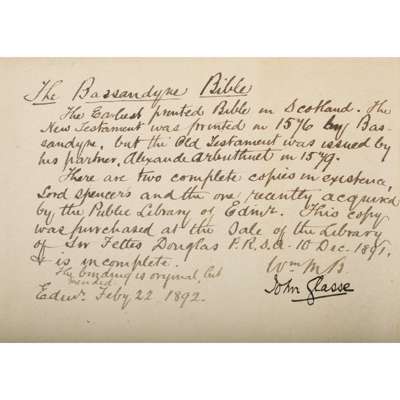 The Bassandyne Bible
The Earliest printed Bible in Scotland. The
New Testament was printed in 1576 by Bas-
sandyne, but the Old Testament was issued by
his partner, Alexander Arbuthnet in 1579.
There are two complete copies in existence,
Lord Spencer's and the one, recently acquired
by the Public Library of Edinr. This copy
was purchased at the Sale of the Library
of Sir Fettes Douglas P.R.S.A. 10 Dec. 1891.
It is incomplete.
The binding is original, but
mended.
Wm M B.
John Glasse
Edinr. Feby 22, 1892.